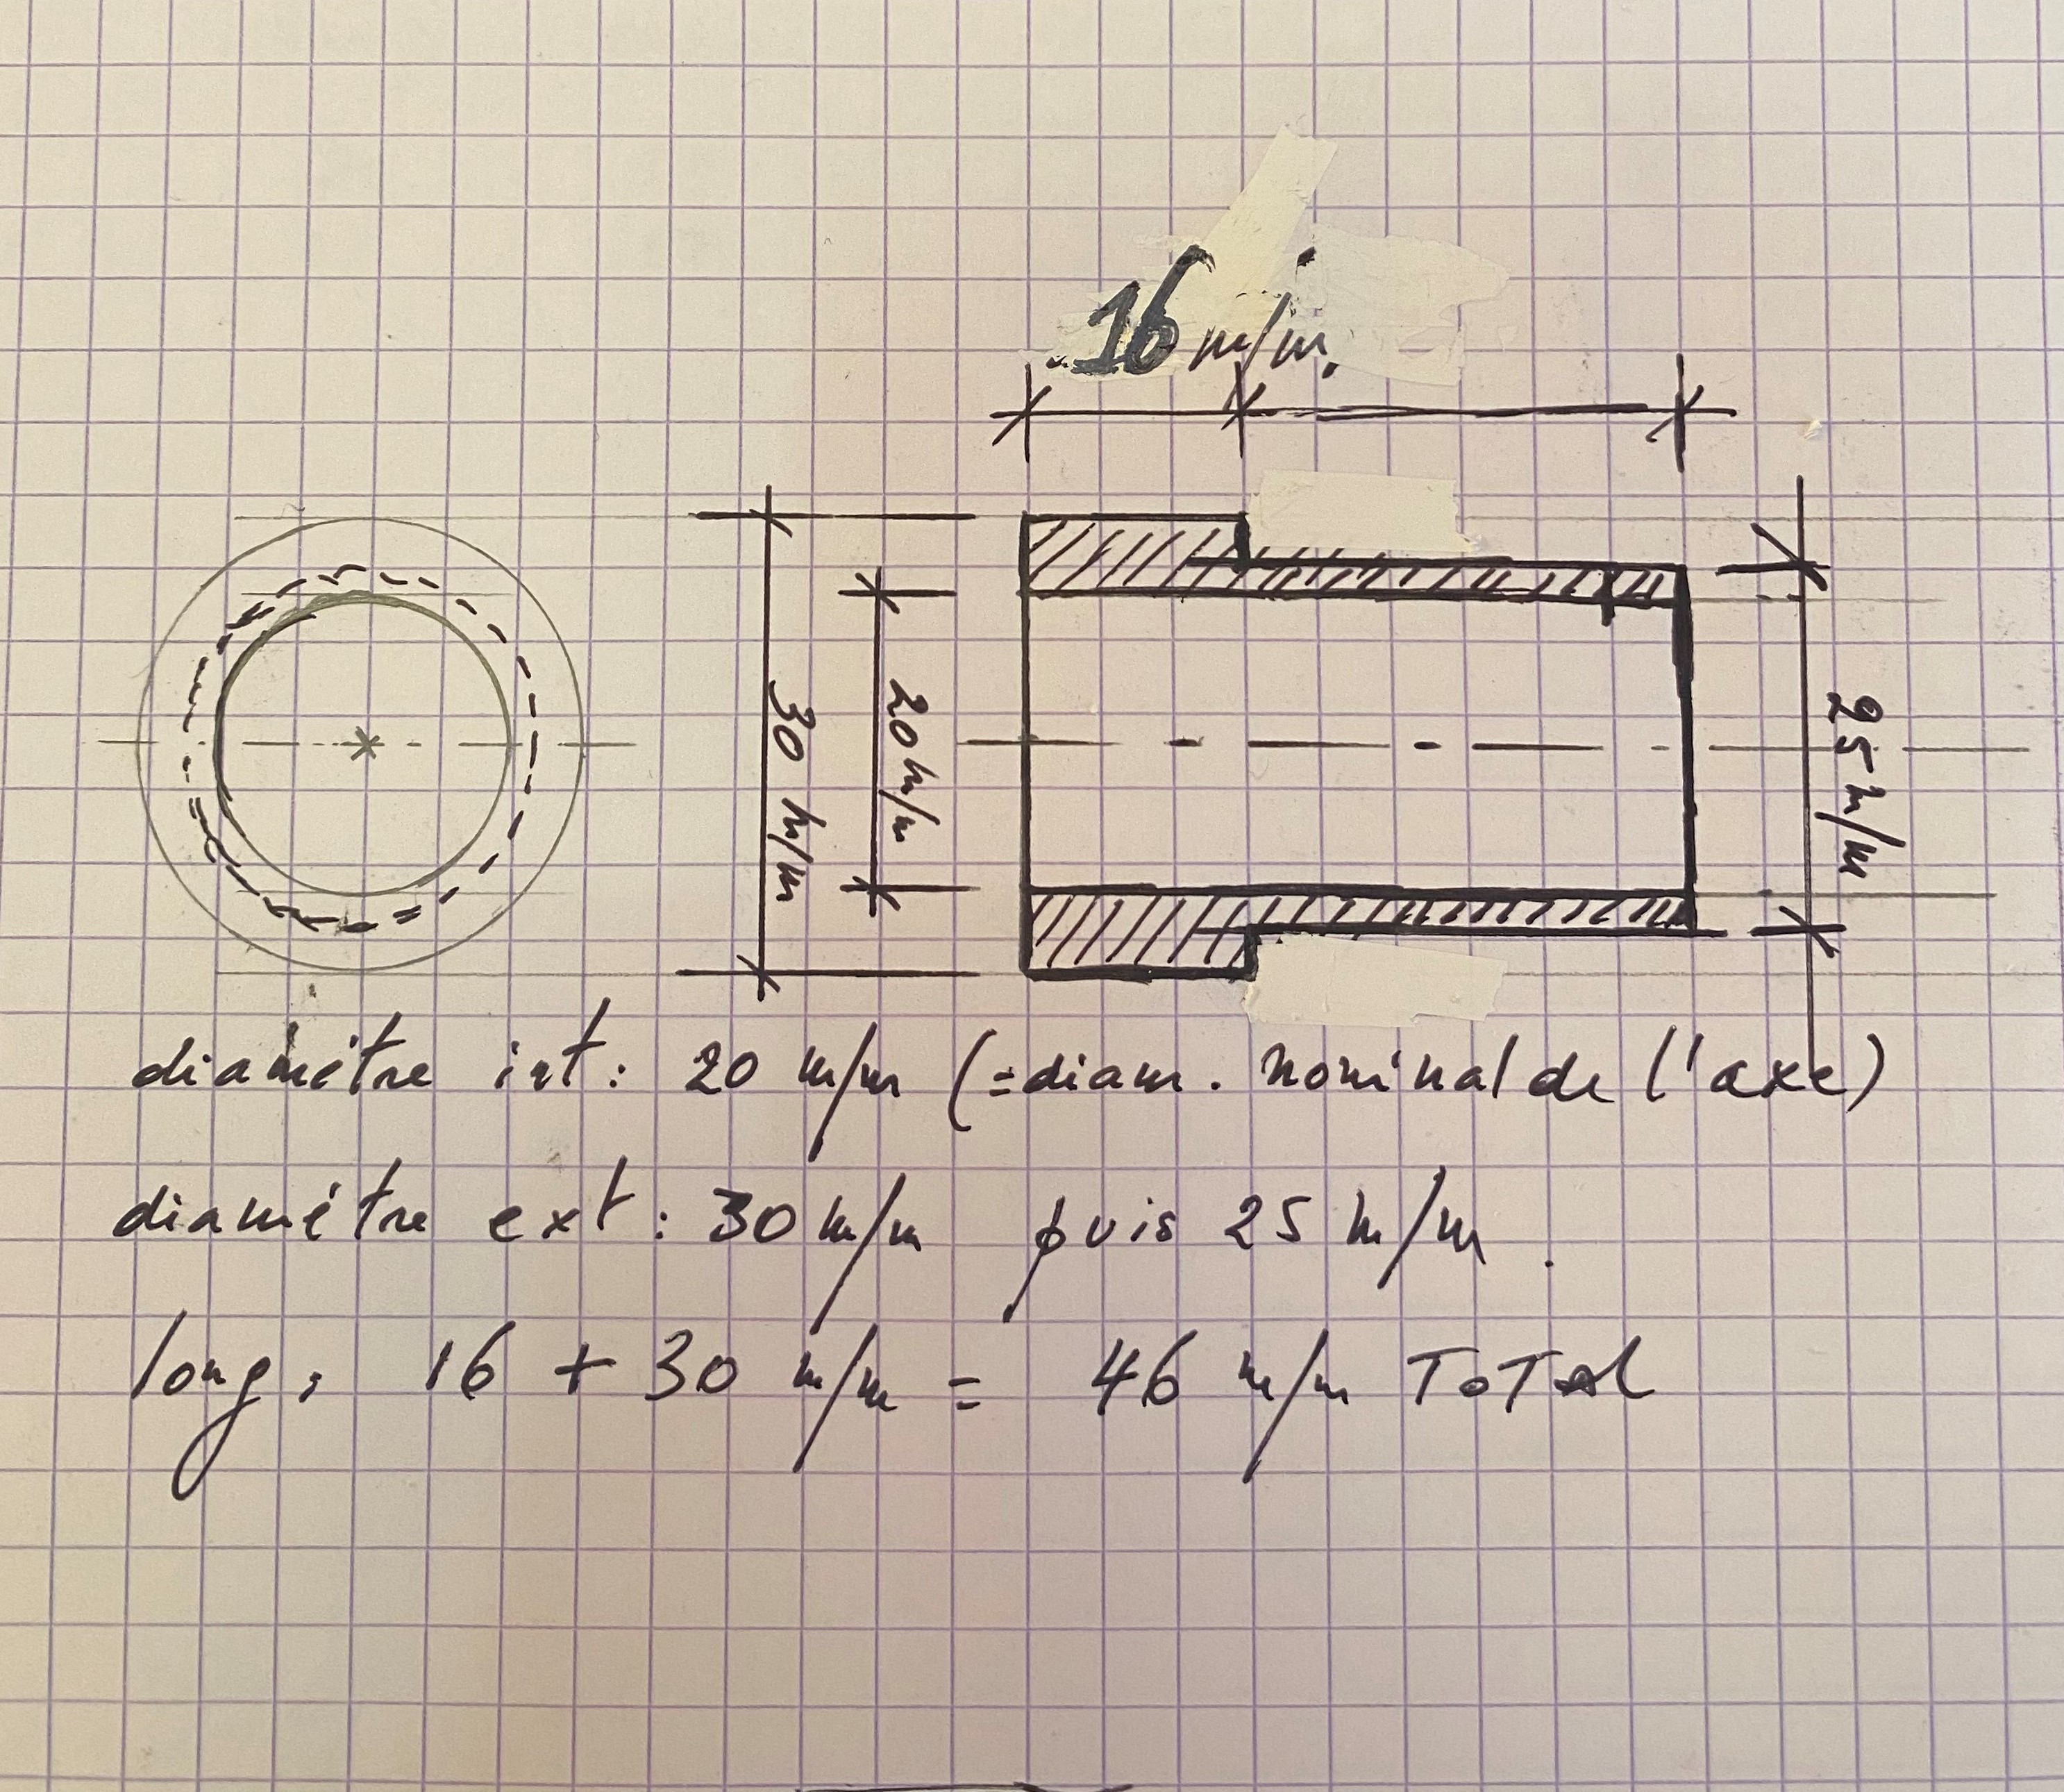 16 m/m.
30 m/m
20 m/m
25 m/m
diamètre int: 20 m/m (=diam. nominal de l'axe)
diamètre ext: 30 m/m puis 25 m/m.
long: 16 + 30 m/m = 46 m/m ToTAL